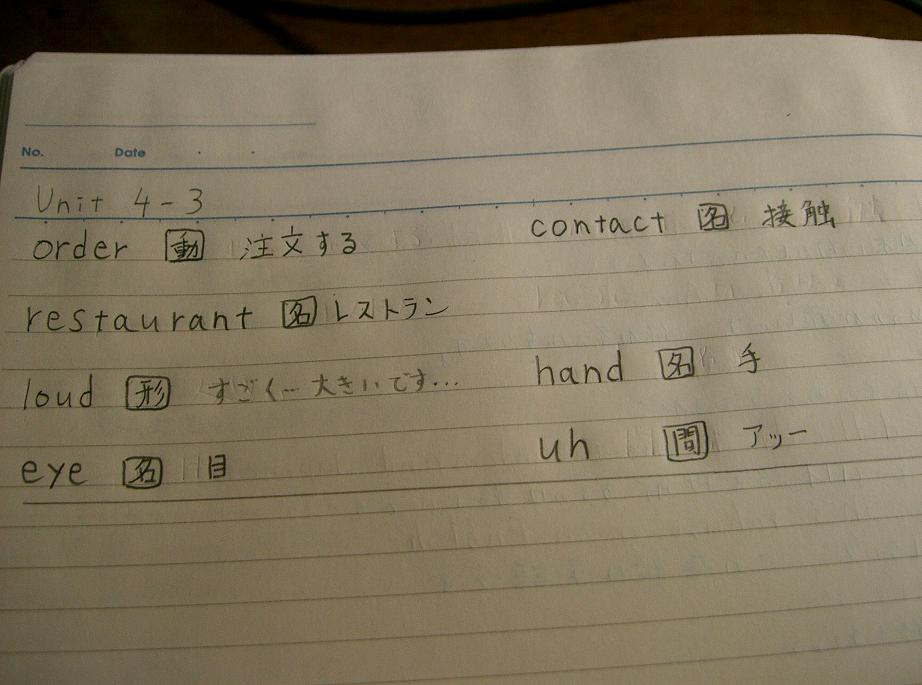 No. Date
Unit 4-3
order 動 注文する
restaurant 名 レストラン
loud 形 すごく…大きいです…
eye 名 目
contact 名 接触
hand 名 手
uh 間 アッー